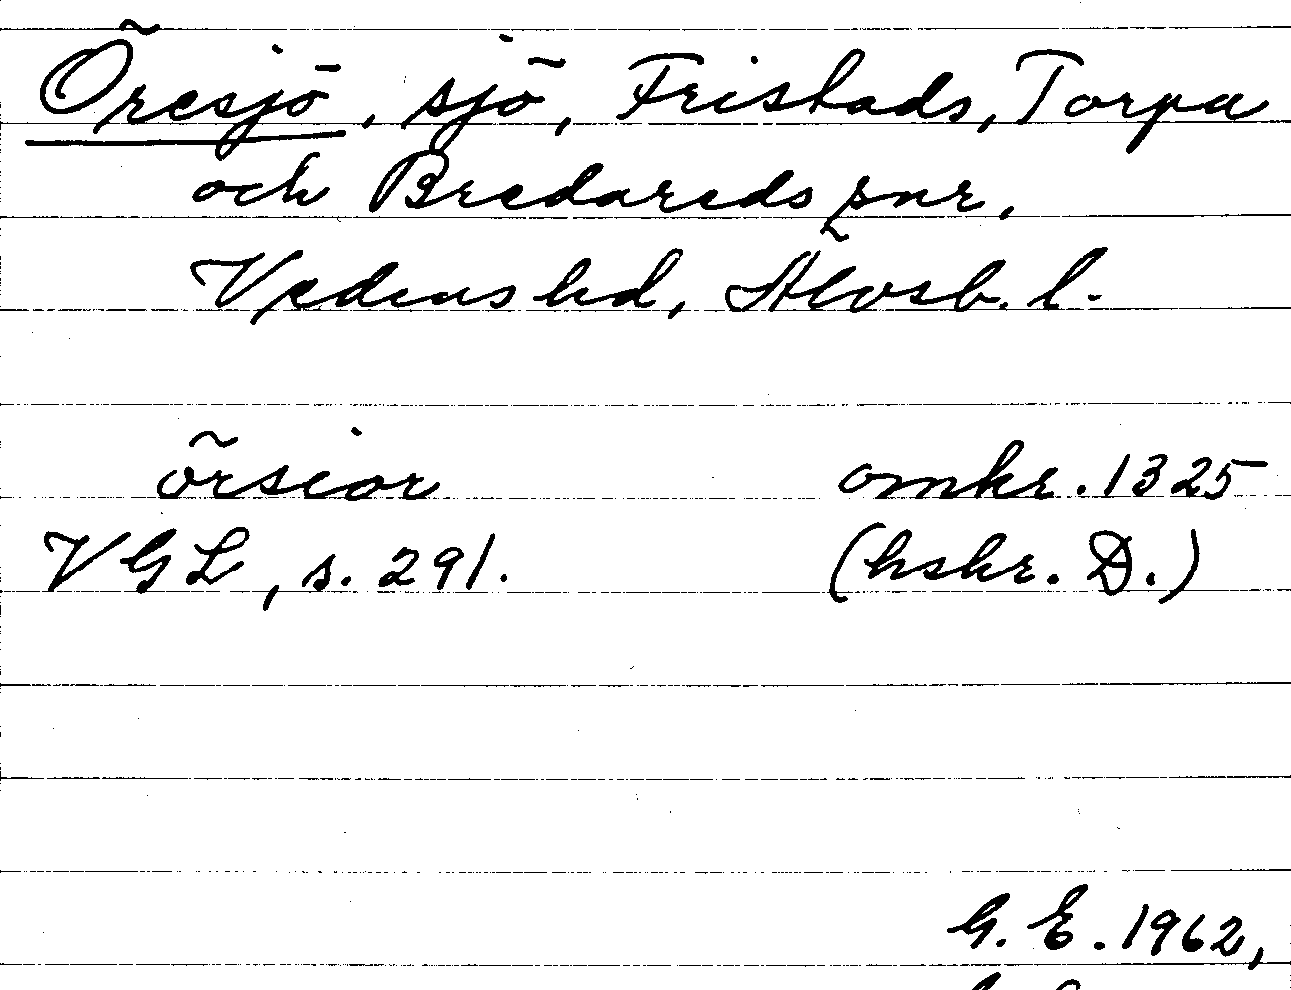 Öresjö, sjö, Fristads, Torpa
och Bredareds snr,
Vedens hd, Älvsb. l.
örsior omkr. 1325
VGL, s. 291. (hskr. D.)
G. E. 1962,